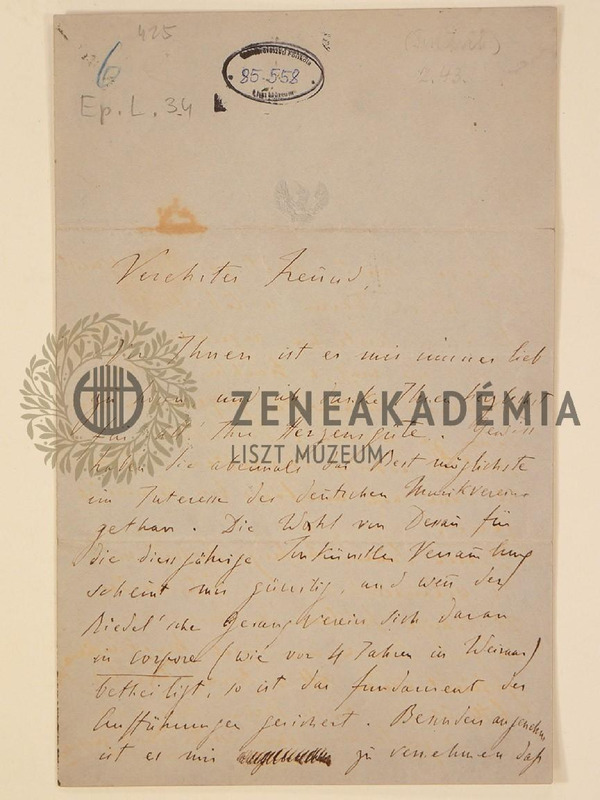 425
6
85-558
LISZT MÚZEUM
Ep. L. 34
Verehrter Freund,
Von Ihnen ist es mir immer lieb
zu hören und ich danke Ihnen herzlichst
für all' Ihre Herzensgüte. Gewiss
haben Sie abermals das Bestmöglichste
im Interesse des deutschen Musikvereins
gethan. Die Wahl von Dessau für
die diesjährige Tonkünstler Versam̄lung
scheint mir günstig, und wen̄ der
Riedel'sche Gesangverein sich daran
in corpore (wie vor 4 Jahren in Weimar)
betheiligt, so ist das fundament der
Aufführungen gesichert. Besonders angenehm
ist es mir zu vernehmen daß
ZENEAKADÉMIA
LISZT MÚZEUM